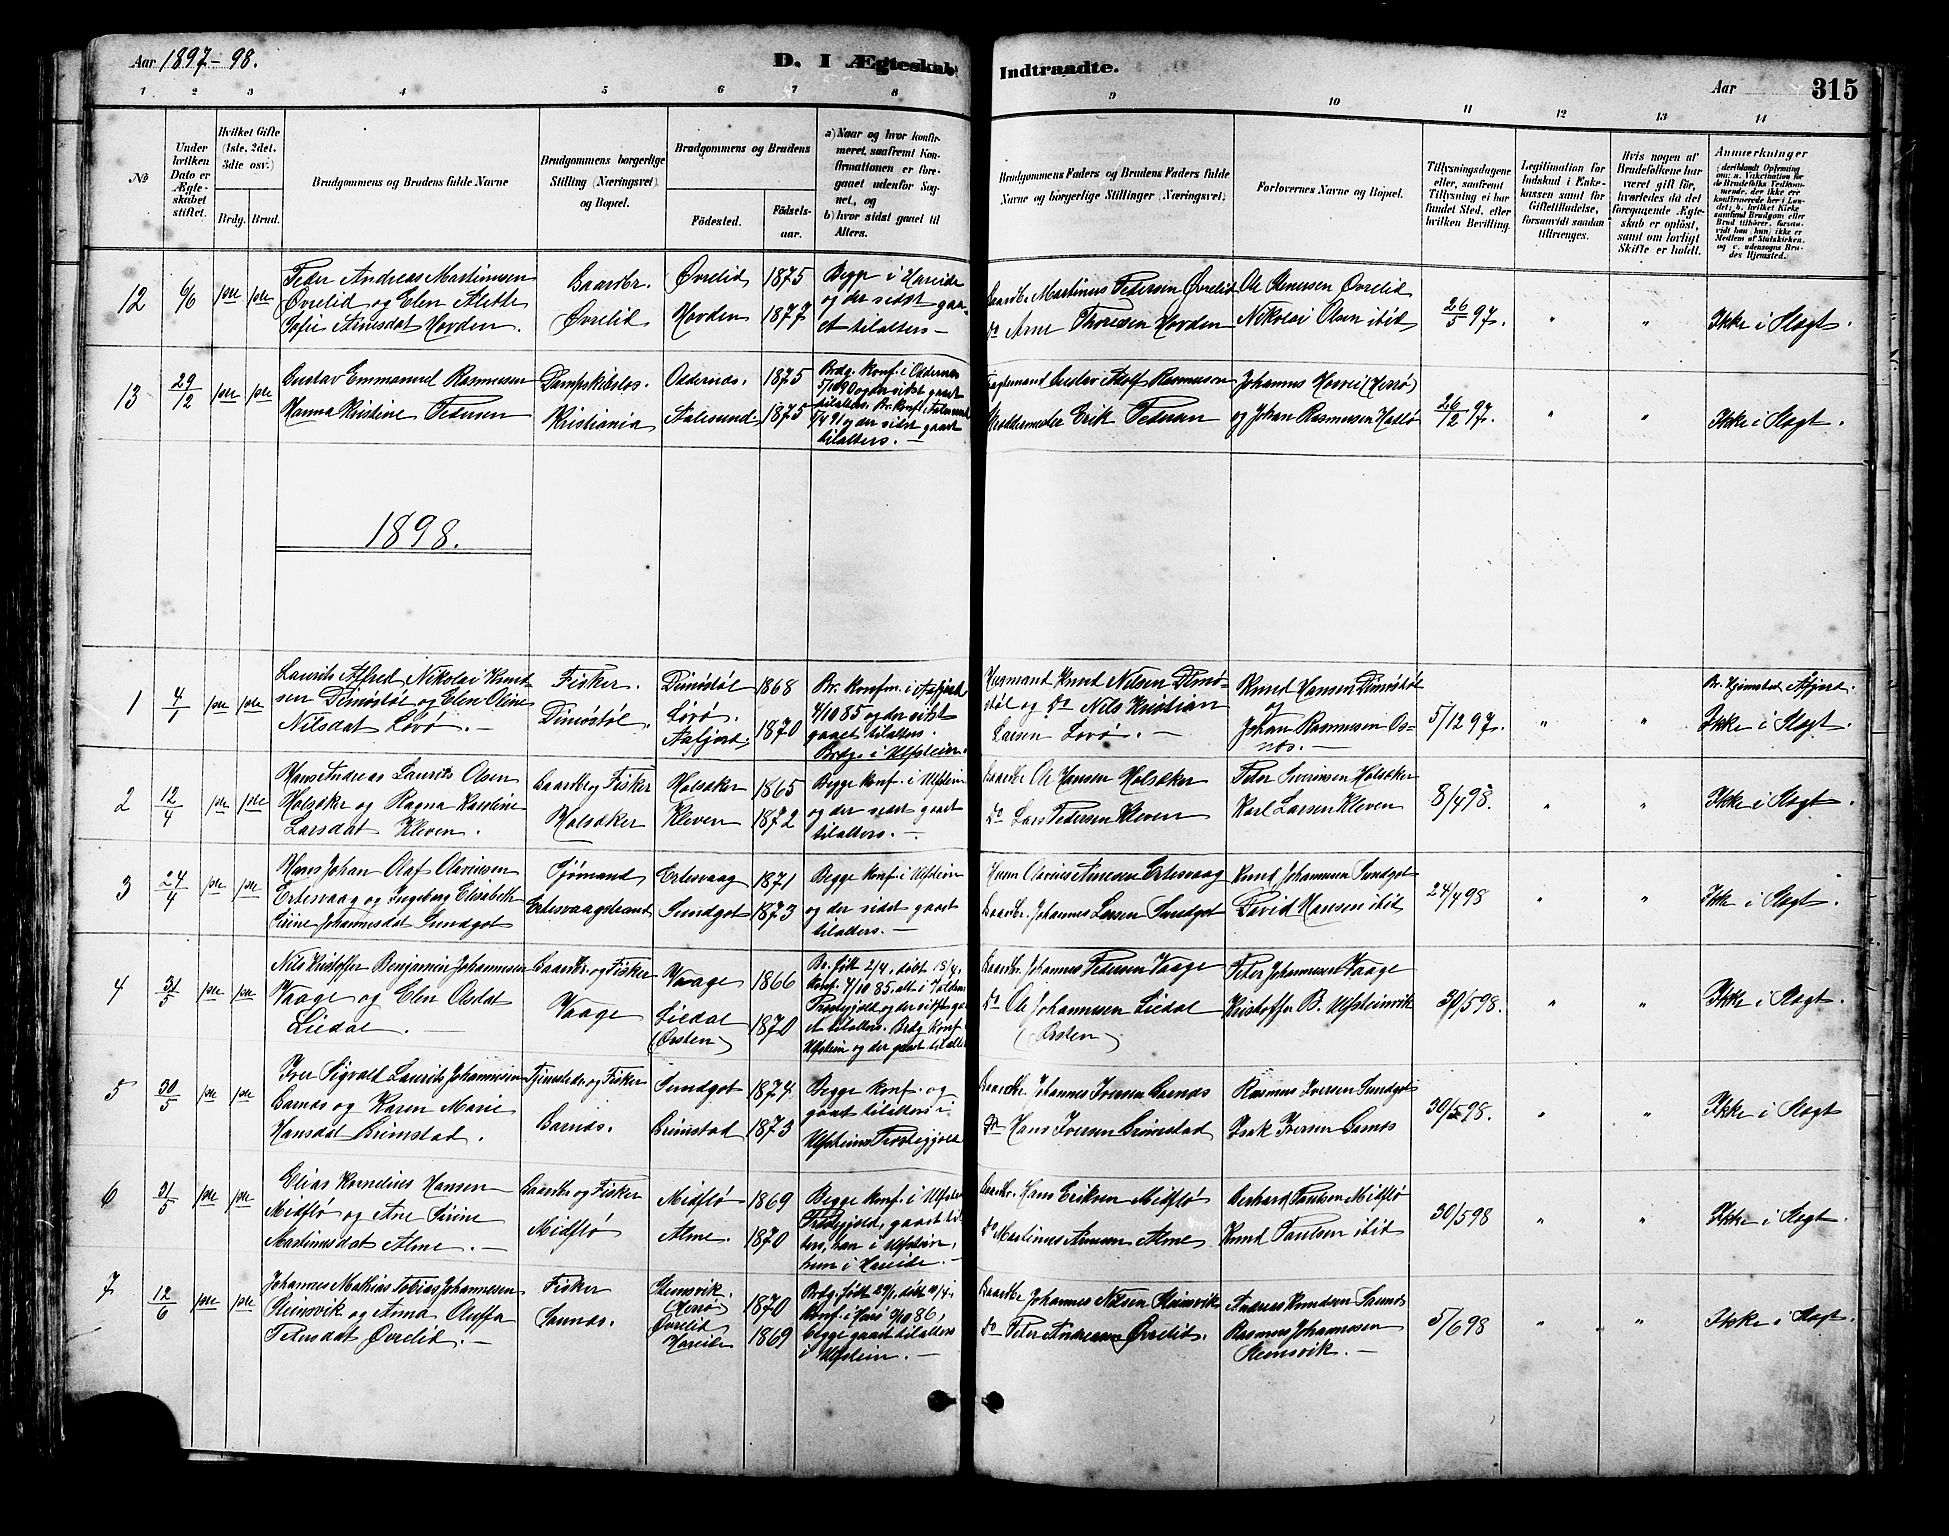 Aar 1897-98.
D. I Ægteskab
Indtraadte.
Aar
315
1 2 3 4 5 6 7 8 9 10 11 12 13 14
No
Under hvilken Dato er Ægteskabet stiftet.
Hvilket Gifte (1ste, 2det, 3dte osv.)
Brdg. Brud.
Brudgommens og Brudens fulde Navne
Brudgommens borgerlige Stilling (Næringsvei) og Bopæl.
Brudgommens og Brudens
Födested.
Födsels-aar.
a) Naar og hvor konfirmeret, saafremt Konfirmationen er foregaaet udenfor Sognet, og
b) hvor sidst gaaet til Alters.
Brudgommens Faders og Brudens Faders fulde Navne og borgerlige Stillinger (Næringsvei).
Forlovernes Navne og Bopæl.
Tillysningsdagene eller, saafremt Tillysning ei har fundet Sted, efter hvilken Bevilling.
Legitimation for Indskud i Enkekassen samt for Giftetilladelse, forsaavidt saadan tiltrænges.
Hvis nogen af Brudefolkene har været gift før, hvorledes da det foregaaende Ægteskab er oplöst, samt om lovligt Skifte er holdt.
Anmærkninger
12
6/6
Peder Andreas Martinussen
Øvrelid og Elen Alette
Sofie Arnesdat Hovden.
Gaardbr.
Øvrelid
Øvrelid
Hovden
1875
1877
Begge i Hareide
og der sidst gaa-
et tilalters —
Gaardbr. Martinus Pedersen Øvrelid
Do Arne Thoresen Hovden
Ole Stenersen Øvrelid
Nikolai Olsen ibid
26/5 97.
Ikke i Slægt.
13
29/12
Gustav Emmanuel Rasmussen
Hanna Kristine Pedersen
Kristiania
Oddernes.
Aalesund
1875
1875
Brdg. Konf. i Oddernes
5/10 90 og der sidst gaaet
tilalters. Br. Konf. i Aalesund
og der sidst gaaet
tilalters. —
Gustav Adolf Rasmussen
Erik Pedersen
Johannes Hovei (Herrø)
og Johan Rasmussen Hatlø
26/12 97.
Ikke i Slægt.
1898.
1
4/1
Laurits Alfred Nikolai Knud-
sen Dimøstøl og Elen Oline
Nilsdat Løvø. —
Fisker.
Dimøstøl.
Dimøstøl
Løvø.
Aafjord.
1868
1870
Br. konfm. i Aafjord
4/10 85 og der sidst
gaaet tilalters.
Brdg. i Ulfstein.
Husmand Knud Nilsen Dimø-
støl og Do Nils Kristian
Larsen Løvø. —
Knud Hansen Dimøstøl
og
Johan Rasmussen Os-
nes. —
5/12 97.
Br. Hjemsted Aafjord.
Ikke i Slægt.
2
12/4
Hans Andreas Laurits Olsen
Holsæker og Ragna Karoline
Larsdat Kleven.
Gaardbr og Fisker
Holsæker
Holsæker
Kleven
1865
1872
Begge Konf. i Ulfstein
og der sidst gaaet
tilalters. —
Gaardbr. Ole Hansen Holsæker
Do Lars Pedersen Kleven
Peter Severinsen Holsæker
Karl Larsen Kleven
8/4 98.
Ikke i Slægt.
3
24/4
Hans Johan Olaf Olavinssen
Ertesvaag og Ingeborg Elisabeth
Sirine Johannesdat Sundgot
Sjømand
Ertesvaagstrand
Ertesvaag
Sundgot
1871
1873
Begge Konf. i Ulfstein
og der sidst gaaet
tilalters. —
Husm Olavius Arnesen Ertesvaag
Gaardbr. Johannes Larsen Sundgot
Knud Johannessen Sundgot
David Hansen ibid
24/4 98
Ikke i Slægt.
4
31/5
Nils Kristoffer Benjamin Johannessen
Vaage og Elen Olsdat
Liedal. —
Gaardbr. og Fisker
Vaage
Vaage
Liedal
(Ørsten)
1866
1870
Br. født 2/4, døbt 18/4.
Konf. 4/10 85. alt i Voldens
Prestegjeld og der sidst gaa-
et tilalters. Brdg konf.
Ulfstein og der gaaet tilalter
Gaardbr. Johannes Pedersen Vaage
Do Ole Johannessen Liedal
(Ørsten)
Peter Johannessen Vaage
Kristoffer B. Ulfsteinvik
30/5 98.
Ikke i Slægt.
5
30/5
Iver Sigvald Laurits Johannessen
Garnæs og Karen Marie
Hansdat Grimstad.
og Fisker
Garnæs.
Sundgot
Grimstad
1874
1873
Begge Konf. og
gaaet tilalters i
Ulfsteins Prestegjeld
Gaardbr. Johannes Iversen Garnæs
Do Hans Iversen Grimestad
Rasmus Iversen Sundgot
Isak Iversen Garnæs
30/5 98.
Ikke i Slægt
6
31/5
Elias Kornelius Hansen
Midflø og Ane Sirine
Martinusdat Alme. —
Gaardbr og Fisker
Midflø
Midflø
Alme.
1869
1870
Begge Konf. i Ulfstein
Prestegjeld, gaaet til
ters, han i Ulfstein,
hun i Hareide. —
Gaardbr. Hans Eriksen Midflø
Do Martinus Arnesen Alme
Gerhard Paulsen Midflø
Knud Paulsen ibid
30/5 98
Ikke i Slægt.
7
12/6
Johannes Mathias Tobias Johannessen
Steinsvik og Anna Oluffa
Petersdat Øvrelid. —
Fisker
Saunæs.
Stensvik.
(Herrø)
Øvrelid
Hareide
1870
1869
Brdg. født 29/1, døbt
Konf. i Herø 3/10 86,
begge gaaet tilalters
i Ulfstein. —
Gaardbr Johannes Nilsen Steinsvik
Do Peter Andreassen Øvrelid.
Andreas Knudsen Saunæs
Rasmus Johannessen
Steinsvik. —
5/6 98
Ikke i Slægt.